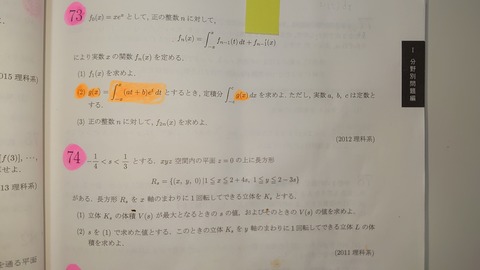 73 f₀(x) = xeˣ として，正の整数 n に対して，
fₙ(x) = ∫₋ₓˣ fₙ₋₁(t) dt + f′ₙ₋₁(x)
により実数 x の関数 fₙ(x) を定める．
(1) f₁(x) を求めよ．
(2) g(x) = ∫₋ₓˣ (at + b)eᵗ dt とするとき，定積分 ∫₋c^c g(x) dx を求めよ．ただし，実数 a, b, c は定数と
する．
(3) 正の整数 n に対して，f₂ₙ(x) を求めよ．
(2012 理科系)
74 −1/4 < s < 1/3 とする．xyz 空間内の平面 z = 0 の上に長方形
Rₛ = {(x, y, 0) | 1 ≦ x ≦ 2 + 4s, 1 ≦ y ≦ 2 − 3s}
がある．長方形 Rₛ を x 軸のまわりに 1 回転してできる立体を Kₛ とする．
(1) 立体 Kₛ の体積 V(s) が最大となるときの s の値，およびそのときの V(s) の値を求めよ．
(2) s を (1) で求めた値とする．このときの立体 Kₛ を y 軸のまわりに 1 回転してできる立体 L の体
積を求めよ．
(2011 理科系)
I 分野別問題編
015 理科系)
[f(3)], …,
せよ．
13 理科系)
を通る平面